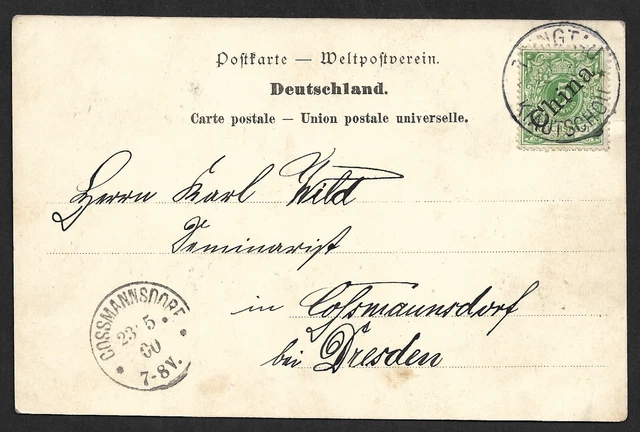 Postkarte — Weltpostverein.
Deutschland.
Carte postale — Union postale universelle.
TSINGTAU
KIAUTSCHOU
China
5
Herrn Karl Wild
Seminarist
in Cossmannsdorf
bei Dresden
COSSMANNSDORF
23. 5
00
7-8 V.